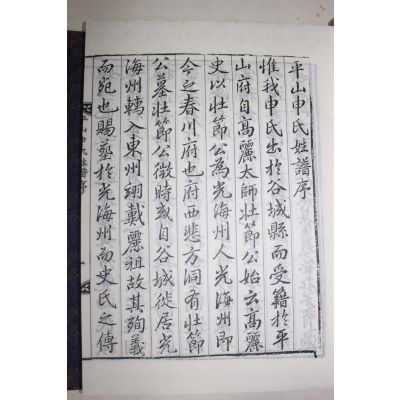 平山申氏姓譜序
惟我申氏出於谷城縣而受籍於平
山府自高麗太師壯節公始云高麗
史以壯節公為光海州人光海州即
今之春川府也府西悲方洞有壯節
公墓壯節公微時或自谷城徙居光
海州轉入東州翊戴麗祖故其殉義
而死也賜葬於光海州而史氏之傳